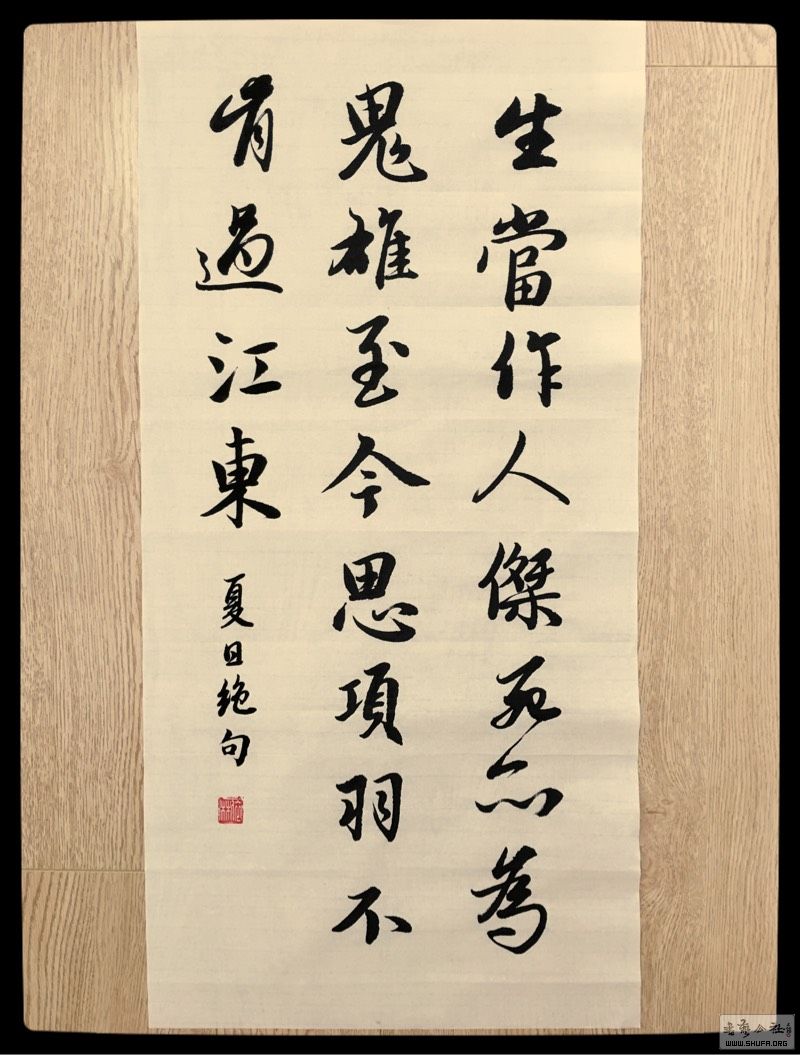 生當作人傑死亦為
鬼雄至今思項羽不
肯過江東
夏日绝句
書藝公社
WWW.SHUFA.ORG